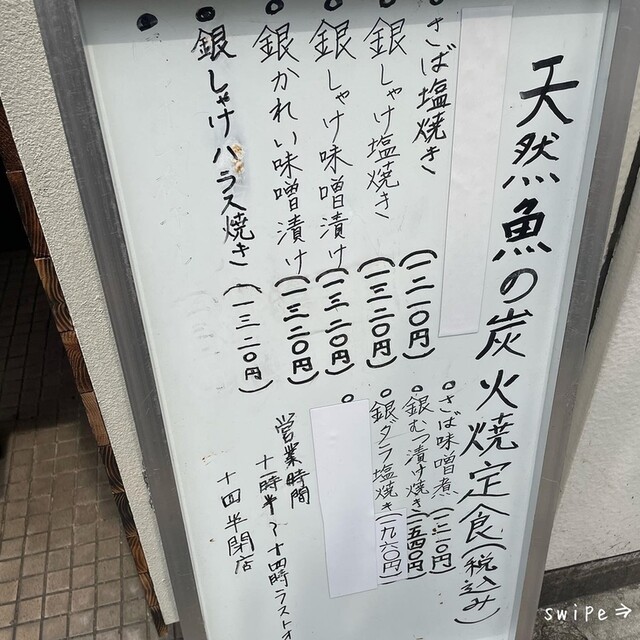 天然魚の炭火焼定食(税込み)
さば塩焼き (一二一〇円)
銀しゃけ塩焼き (一三二〇円)
銀しゃけ味噌漬け (一三二〇円)
銀かれい味噌漬け (一三二〇円)
銀しゃけハラス焼き (一三二〇円)
さば味噌煮 (一二一〇円)
銀むつ漬け焼き (一五四〇円)
銀ダラ塩焼き (一九六〇円)
営業時間
十一時半〜十四時ラストオ
十四半閉店
swipe⇒